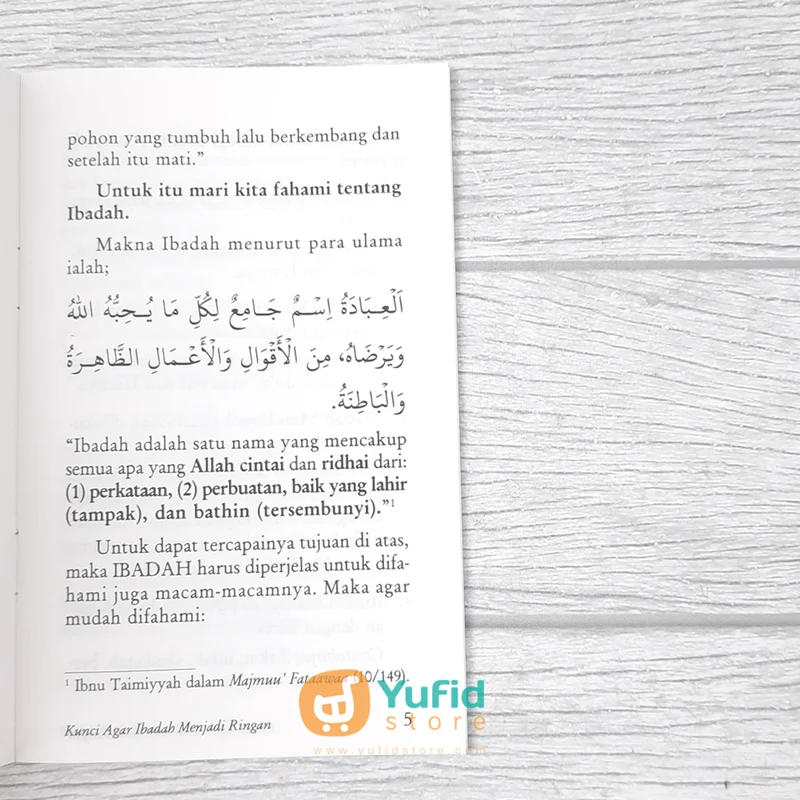 pohon yang tumbuh lalu berkembang dan
setelah itu mati.”
Untuk itu mari kita fahami tentang
Ibadah.
Makna Ibadah menurut para ulama
ialah;
اَلْعِبَادَةُ اِسْمٌ جَامِعٌ لِكُلِّ مَا يُحِبُّهُ اللهُ
وَيَرْضَاهُ، مِنَ الْأَقْوَالِ وَالْأَعْمَالِ الظَّاهِرَةُ
وَالْبَاطِنَةُ.
“Ibadah adalah satu nama yang mencakup
semua apa yang Allah cintai dan ridhai dari:
(1) perkataan, (2) perbuatan, baik yang lahir
(tampak), dan bathin (tersembunyi).”¹
Untuk dapat tercapainya tujuan di atas,
maka IBADAH harus diperjelas untuk difa-
hami juga macam-macamnya. Maka agar
mudah difahami:
¹ Ibnu Taimiyyah dalam Majmuu' Fataawaa (10/149).
Kunci Agar Ibadah Menjadi Ringan 5
Yufid
store
www.yufidstore.com